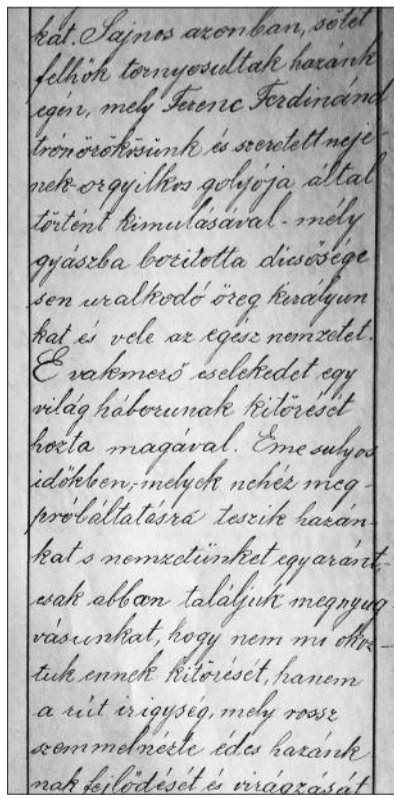 kat. Sajnos azonban, sötét
felhők tornyosultak hazánk
egén, mely Ferenc Ferdinánd
trónörökösünk és szeretett nejé-
nek-orgyilkos golyója által
történt kimulásával - mély
gyászba boritotta dicsősége
sen uralkodó öreg királyun
kat és vele az egész nemzetet.
E vakmerő cselekedet egy
világ háborunak kitörését
hozta magával. Eme sulyos
időkben, melyek nehéz meg-
próbáltatásra teszik hazán-
kat s nemzetünket egyaránt,-
csak abban találjuk megnyug
vásunkat, hogy nem mi okoz-
tuk ennek kitörését, hanem
a rút irigység, mely rossz
szemmelnézte édes hazánk
nak fejlődését és virágzását